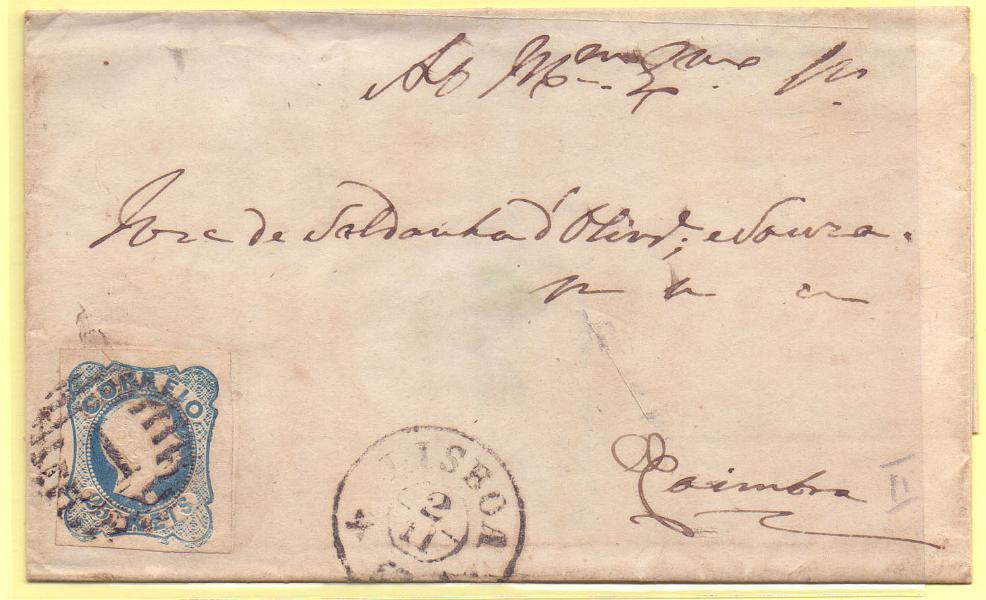 José de Saldanha d'Olivrª. e Souza.
Coimbra
CORREIO
25 REIS
LISBOA
2
11
II